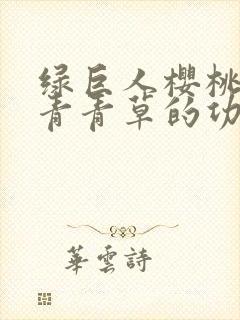 绿巨人樱桃
青青草的功
華雲詩